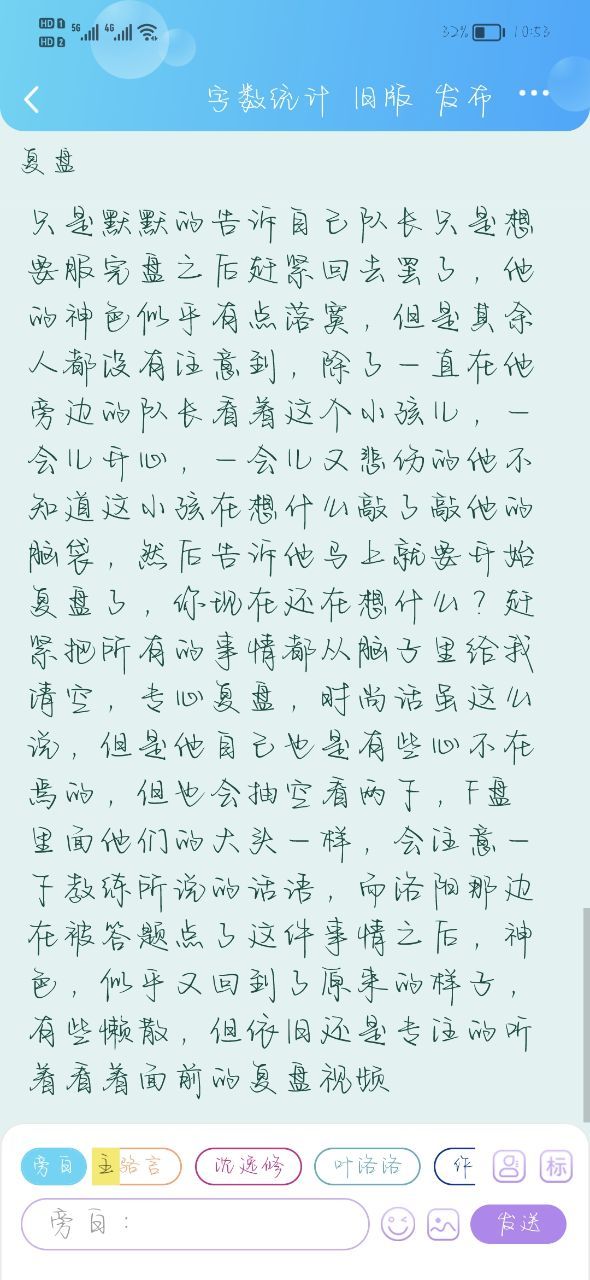 HD 1 5G 4G
HD 2
32% 10:53
字数统计 旧版 发布 ...
复盘
只是默默的告诉自己队长只是想
要服完盘之后赶紧回去罢了，他
的神色似乎有点落寞，但是其余
人都没有注意到，除了一直在他
旁边的队长看着这个小孩儿，一
会儿开心，一会儿又悲伤的他不
知道这小孩在想什么敲了敲他的
脑袋，然后告诉他马上就要开始
复盘了，你现在还在想什么？赶
紧把所有的事情都从脑子里给我
清空，专心复盘，时尚话虽这么
说，但是他自己也是有些心不在
焉的，但也会抽空看两下，F盘
里面他们的大头一样，会注意一
下教练所说的话语，而洛阳那边
在被答题点了这件事情之后，神
色，似乎又回到了原来的样子，
有些懒散，但依旧还是专注的听
着看着面前的复盘视频
旁白 主 骆言 沈逸修 叶洛洛 作 标
旁白： 发送